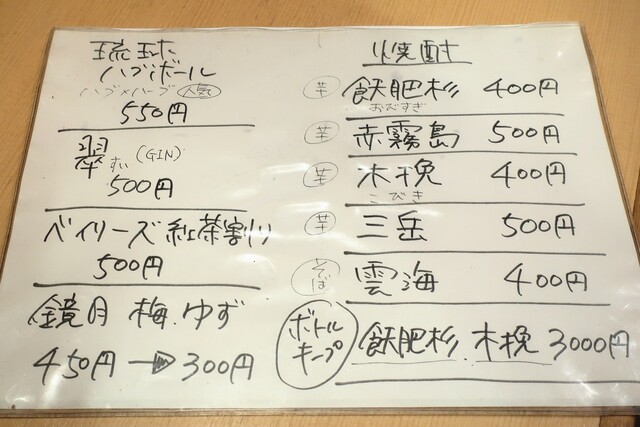 琉球
ハブボール
ハブ×ハーブ 人気
550円
翠 すい (GIN)
500円
ベイリーズ紅茶割り
500円
鏡月 梅.ゆず
450円→300円
焼酎
芋 飫肥杉 400円
おびすぎ
芋 赤霧島 500円
芋 木挽 400円
こびき
芋 三岳 500円
そば 雲海 400円
ボトル
キープ
飫肥杉.木挽 3000円